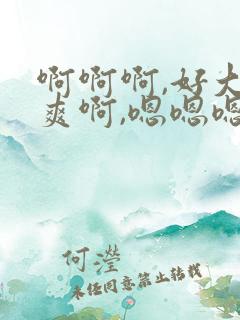 啊啊啊,好大
爽啊,嗯嗯嗯
何滢
未经同意禁止转载